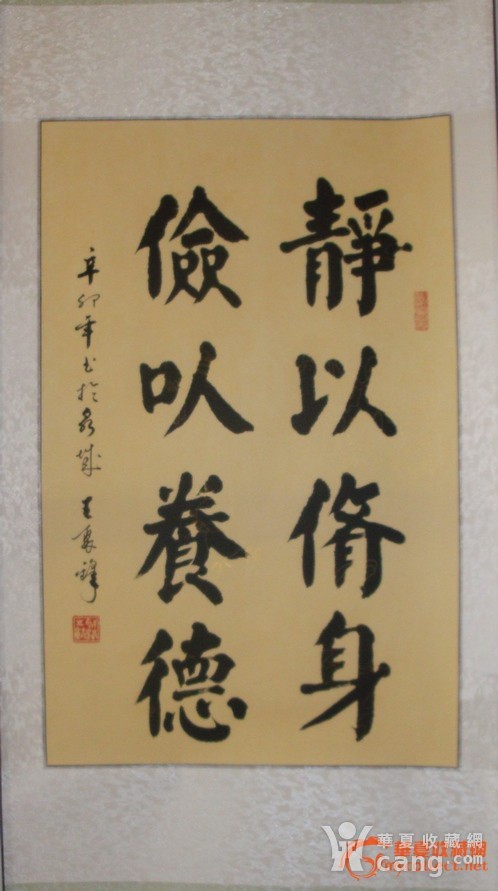 靜以脩身
儉㕥養德
辛卯年书於泉城 王
華夏收藏網
cang.com